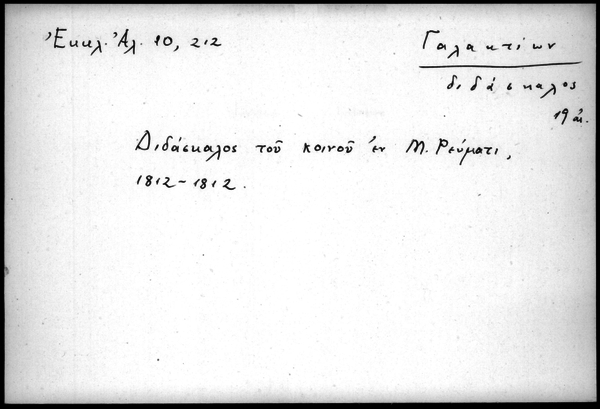 Ἐκκλ. Ἀλ. 10, 212
Γαλακτίων
διδάσκαλος
19 αἰ.
Διδάσκαλος τοῦ κοινοῦ ἐν Μ. Ρεύματι,
1812-1812.